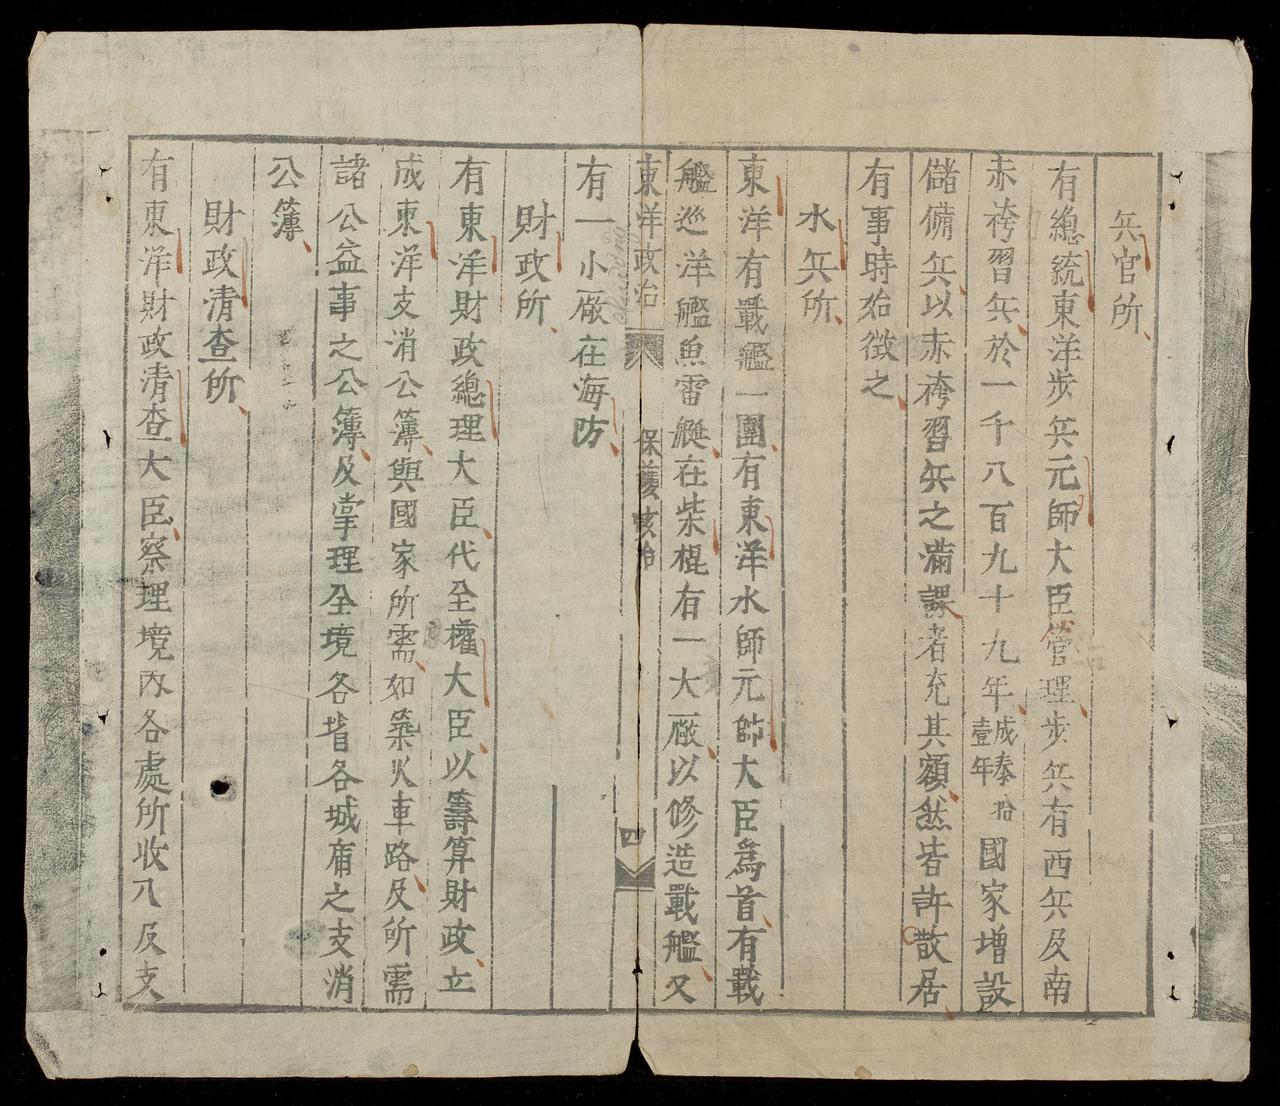 兵官所
有總統東洋步兵元師大臣管理步兵有西兵及南
赤袴習兵於一千八百九十九年成泰拾壹年國家增設
儲備兵以赤袴習兵之滿課者充其額然皆許散居
有事時始徵之
水兵所
東洋有戰艦一團有東洋水師元帥大臣爲首有戰
艦巡洋艦魚雷艇在柴棍有一大廠以修造戰艦又
東洋政治
保護
四
有一小廠在海防
財政所
有東洋財政總理大臣代全權大臣以籌算財政立
成東洋支消公簿與國家所需如築火車路及所需
諸公益事之公簿及掌理全境各省各城庯之支消
公簿
財政清查所
有東洋財政清查大臣察理境內各處所收入及支